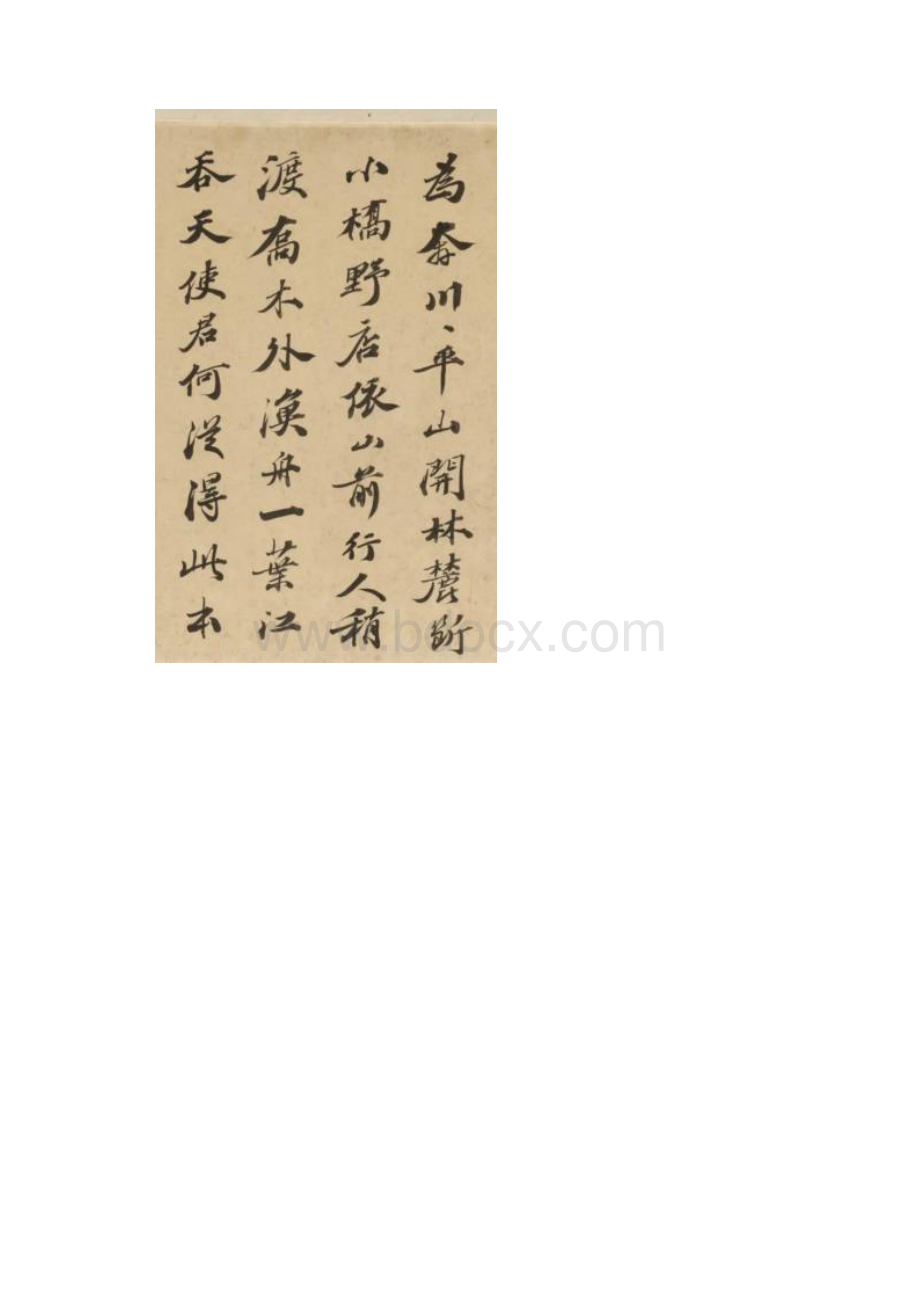 為奔川〻平山開林麓斷
小橋野店依山前行人稍
渡喬木外漁舟一葉江
吞天使君何從得此本
www.bdocx.com